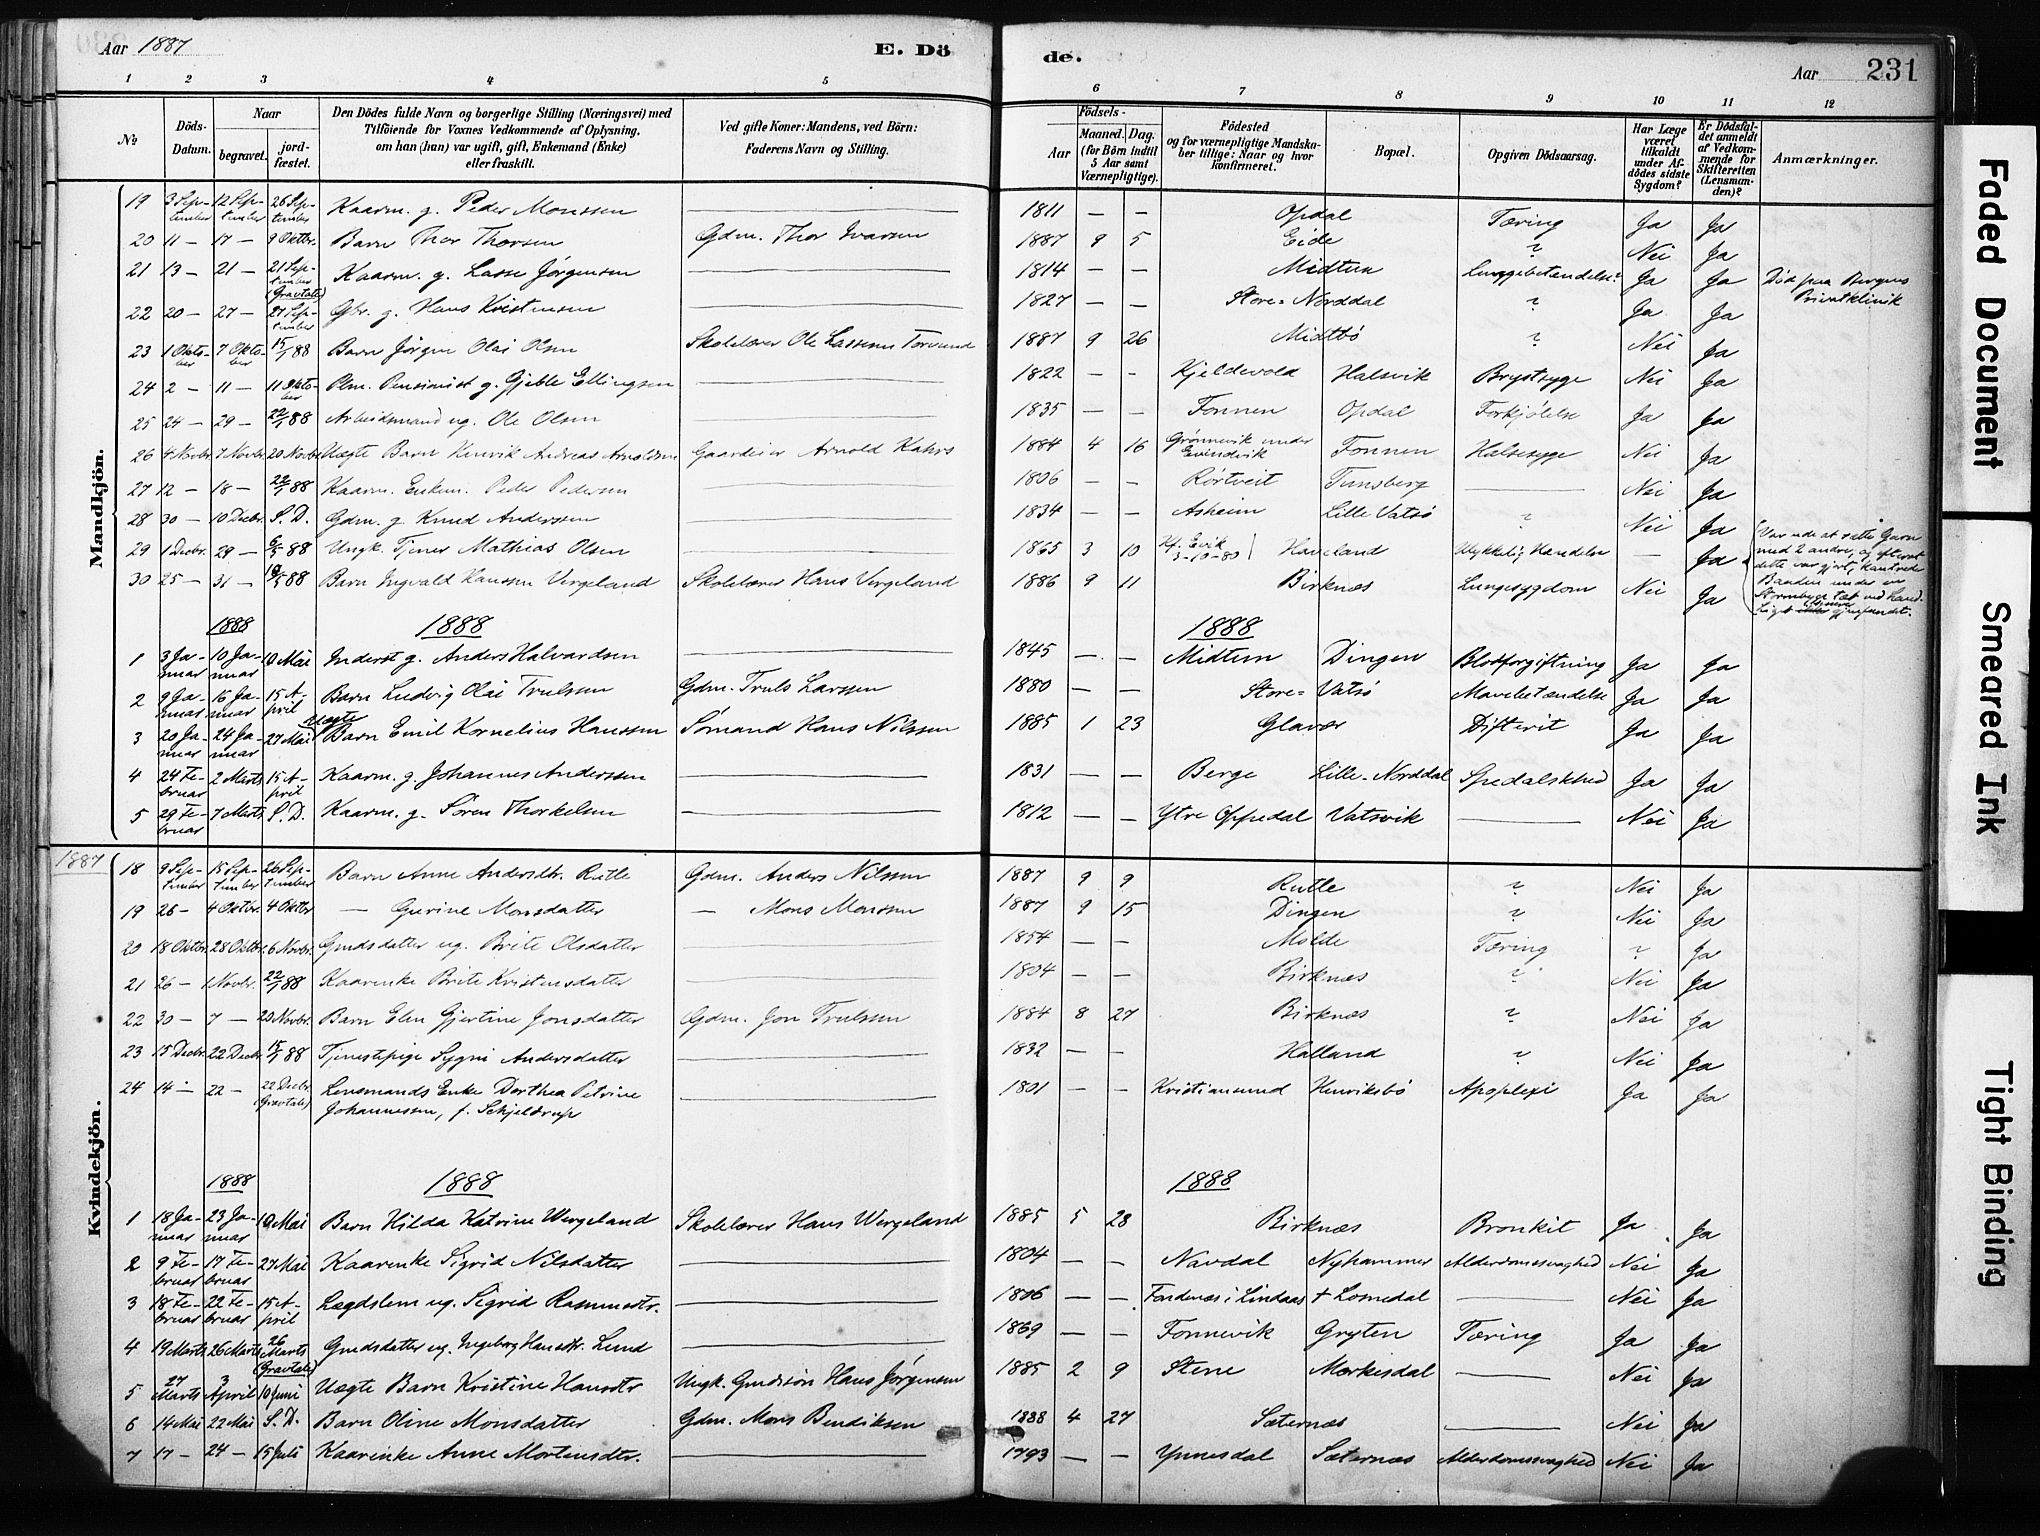 Aar 1887
E. Dö
de.
Aar 231
1 2 3 4 5 6 7 8 9 10 11 12
№
Döds-Datum.
Naar
begravet.
jord-fæstet.
Den Dödes fulde Navn og borgerlige Stilling (Næringsvei) med
Tilföiende for Voxnes Vedkommende af Oplysning.
om han (han) var ugift, gift, Enkemand (Enke)
eller fraskilt.
Ved gifte Koner: Mandens, ved Börn:
Faderens Navn og Stilling.
Födsels-
Aar
Maaned. Dag.
(for Börn indtil
5 Aar samt
Værnepligtige).
Födested
og for værnepligtige Mandska-
ber tillige: Naar og hvor
konfirmeret.
Bopæl.
Opgiven Dödsaarsag.
Har Læge
været
tilkaldt
under Af-
dödes sidste
Sygdom?
Er Dödsfal-
det anmeldt
af Vedkom-
mende for
Skifteretten
(Lensman-
den)?
Anmærkninger.
Mandkjön.
19 3 September 12 September 26 September Kaarm. g. Peder Monssen — 1811 — — Opdal Tæring Ja Ja
20 11 — 17 — 9 Oktbr. Barn Thor Thorsen Gdm. Thor Ivarsen 1887 9 5 Eide ? Nei Ja
21 13 — 21 — 21 September (Gravtale) Kaarm. g. Lasse Jörgensen — 1814 — — Midtun Lunggebetændelse? Ja Ja Död paa Bergens Privatklinik
22 20 — 27 — 27 September Gbr. g. Hans Kristensen — 1827 — — Store-Norddal ? Ja Ja
23 1 Oktober 7 Oktober 15/1 88 Barn Jörgen Olai Olsen Skolelærer Ole Lassesen Torsund 1887 9 26 Midtbö ? Nei Ja
24 2 — 11 — 11 Oktober Plm. Pensionist g. Gjeble Ellingsen — 1822 — — Kjeldevold Halsvik Brystsyge Nei Ja
25 24 — 29 — 22/1 88 Arbeidsmand ug. Ole Olsen — 1835 — — Fonnen Opdal Forkjölelse Ja Ja
26 4 Novbr. 7 Novbr. 20 Novbr. Uægte Barn Henrik Andreas Arnoldsen Gaardeier Arnold Kahrs 1884 4 16 Grönnevik under Evindvik Fonnen Halsesyge Nei Ja
27 12 — 18 — 22/1 88 Kaarm. Enkem. Peder Pedersen — 1806 — — Rörtveit Tunsberg — Nei Ja
28 30 — 10 Decbr. S. D. Gdm. g. Knud Anderssen — 1834 — — Asheim Lille Vatsö ? Nei Ja
29 1 Decbr. 29 — 6/5 88 Ungk. Tjener Mathias Olsen — 1865 3 10 Kf. Evik 3-10-80 Haveland Ulykkelig Hændelse — Ja Var ude at sætte Garn
med 2 andre, og efterat
dette var gjort, kantrede
Baaden under en
Stormbyge tæt ved Land.
Liget gjenfandt.
30 25 — 31 — 10/5 88 Barn Ingvald Hanssen Vergeland Skolelærer Hans Vergeland 1886 9 11 Birknæs Lungesygdom Nei Ja
1888 1888 1888
1 3 Januar 10 Januar 10 Mai Inderst g. Anders Halvardsen — 1845 — — Midtun Dingen Blodforgiftning Ja Ja
2 9 Januar 16 Januar 15 April Barn Ludvig Olai Trulssen Gdm. Truls Larssen 1880 — — Store-Vatsö Mavebetændelse Ja Ja
3 20 Januar 24 Januar 27 Mai Uægte Barn Emil Kornelius Hanssen Sömand Hans Nilssen 1885 1 23 Glavær Difterit Ja Ja
4 24 Februar 2 Marts 15 April Kaarm. g. Johannes Anderssen — 1831 — — Berge Lille-Norddal Spedalskhed Ja Ja
5 29 Februar 7 Marts S. D. Kaarm. g. Sören Thorkelsen — 1812 — — Ytre Oppedal Vatsvik — Nei Ja
1887
Kvindekjön.
18 9 September 15 September 26 September Barn Anne Andersdtr. Rutle Gdm. Anders Nilssen 1887 9 9 Rutle ? Nei Ja
19 26 — 4 Oktbr. 4 Oktbr — Gurine Monsdatter — Mons Monssen 1887 9 15 Dingen ? Nei Ja
20 18 Oktbr. 28 Oktbr. 6 Novbr. Gmdsdatter ug. Brite Olsdatter — 1854 — — Molde Tæring ? Ja
21 26 — 1 Novbr. 22/1 88 Kaarenke Brite Kristensdatter — 1804 — — Birknæs ? Nei Ja
22 30 — 7 — 20 Novbr. Barn Elen Gjertine Jonsdatter Gdm. Jon Trulssen 1884 8 27 Birknæs ? Nei Ja
23 15 Decbr. 22 Decbr. 15/1 88 Tjenestepige Sygni Andersdatter — 1832 — — Halland ? Nei Ja
24 14 — 22 — 22 Decbr. (Gravtale) Lensmands Enke Dorthea Petrine
Johannessen, f. Schjelderup — 1801 — — Kristiansund Henriksbö Apoplexi Ja Ja
1888 1888 1888
1 18 Januar 23 Januar 10 Mai Barn Hilda Katrine Wergeland Skolelærer Hans Wergeland 1885 5 28 Birknæs Bronkit Ja Ja
2 9 Februar 17 Februar 27 Mai Kaarenke Sigrid Nilsdatter — 1804 — — Navdal Nyhammer Alderdomssvaghed Nei Ja
3 18 Februar 22 Februar 15 April Lægdslem ug. Sigrid Rasmusdtr. — 1806 — — Fondenæs i Lindaas + Losnedal — Nei Ja
4 19 Marts 26 Marts 26 Marts (Gravtale) Gmdsdatter ug. Ingeborg Hansdtr. Lund — 1869 — — Fonnevik Gryten Tæring Ja Ja
5 27 Marts 3 April 10 Juni Uægte Barn Kristine Hansdtr Ungk. Gmdssön Hans Jörgensen 1885 2 9 Stene Mørkesdal — Nei Ja
6 14 Mai 22 Mai S. D. Barn Oline Monsdatter Gdm. Mons Bendiksen 1888 4 27 Sæternæs — Nei Ja
7 17 — 24 — 15 Juli Kaarenke Anne Mortensdtr. — 1793 — — Ynnesdal Sæternæs Alderdomssvaghed Nei Ja
Faded Document
Smeared Ink
Tight Binding